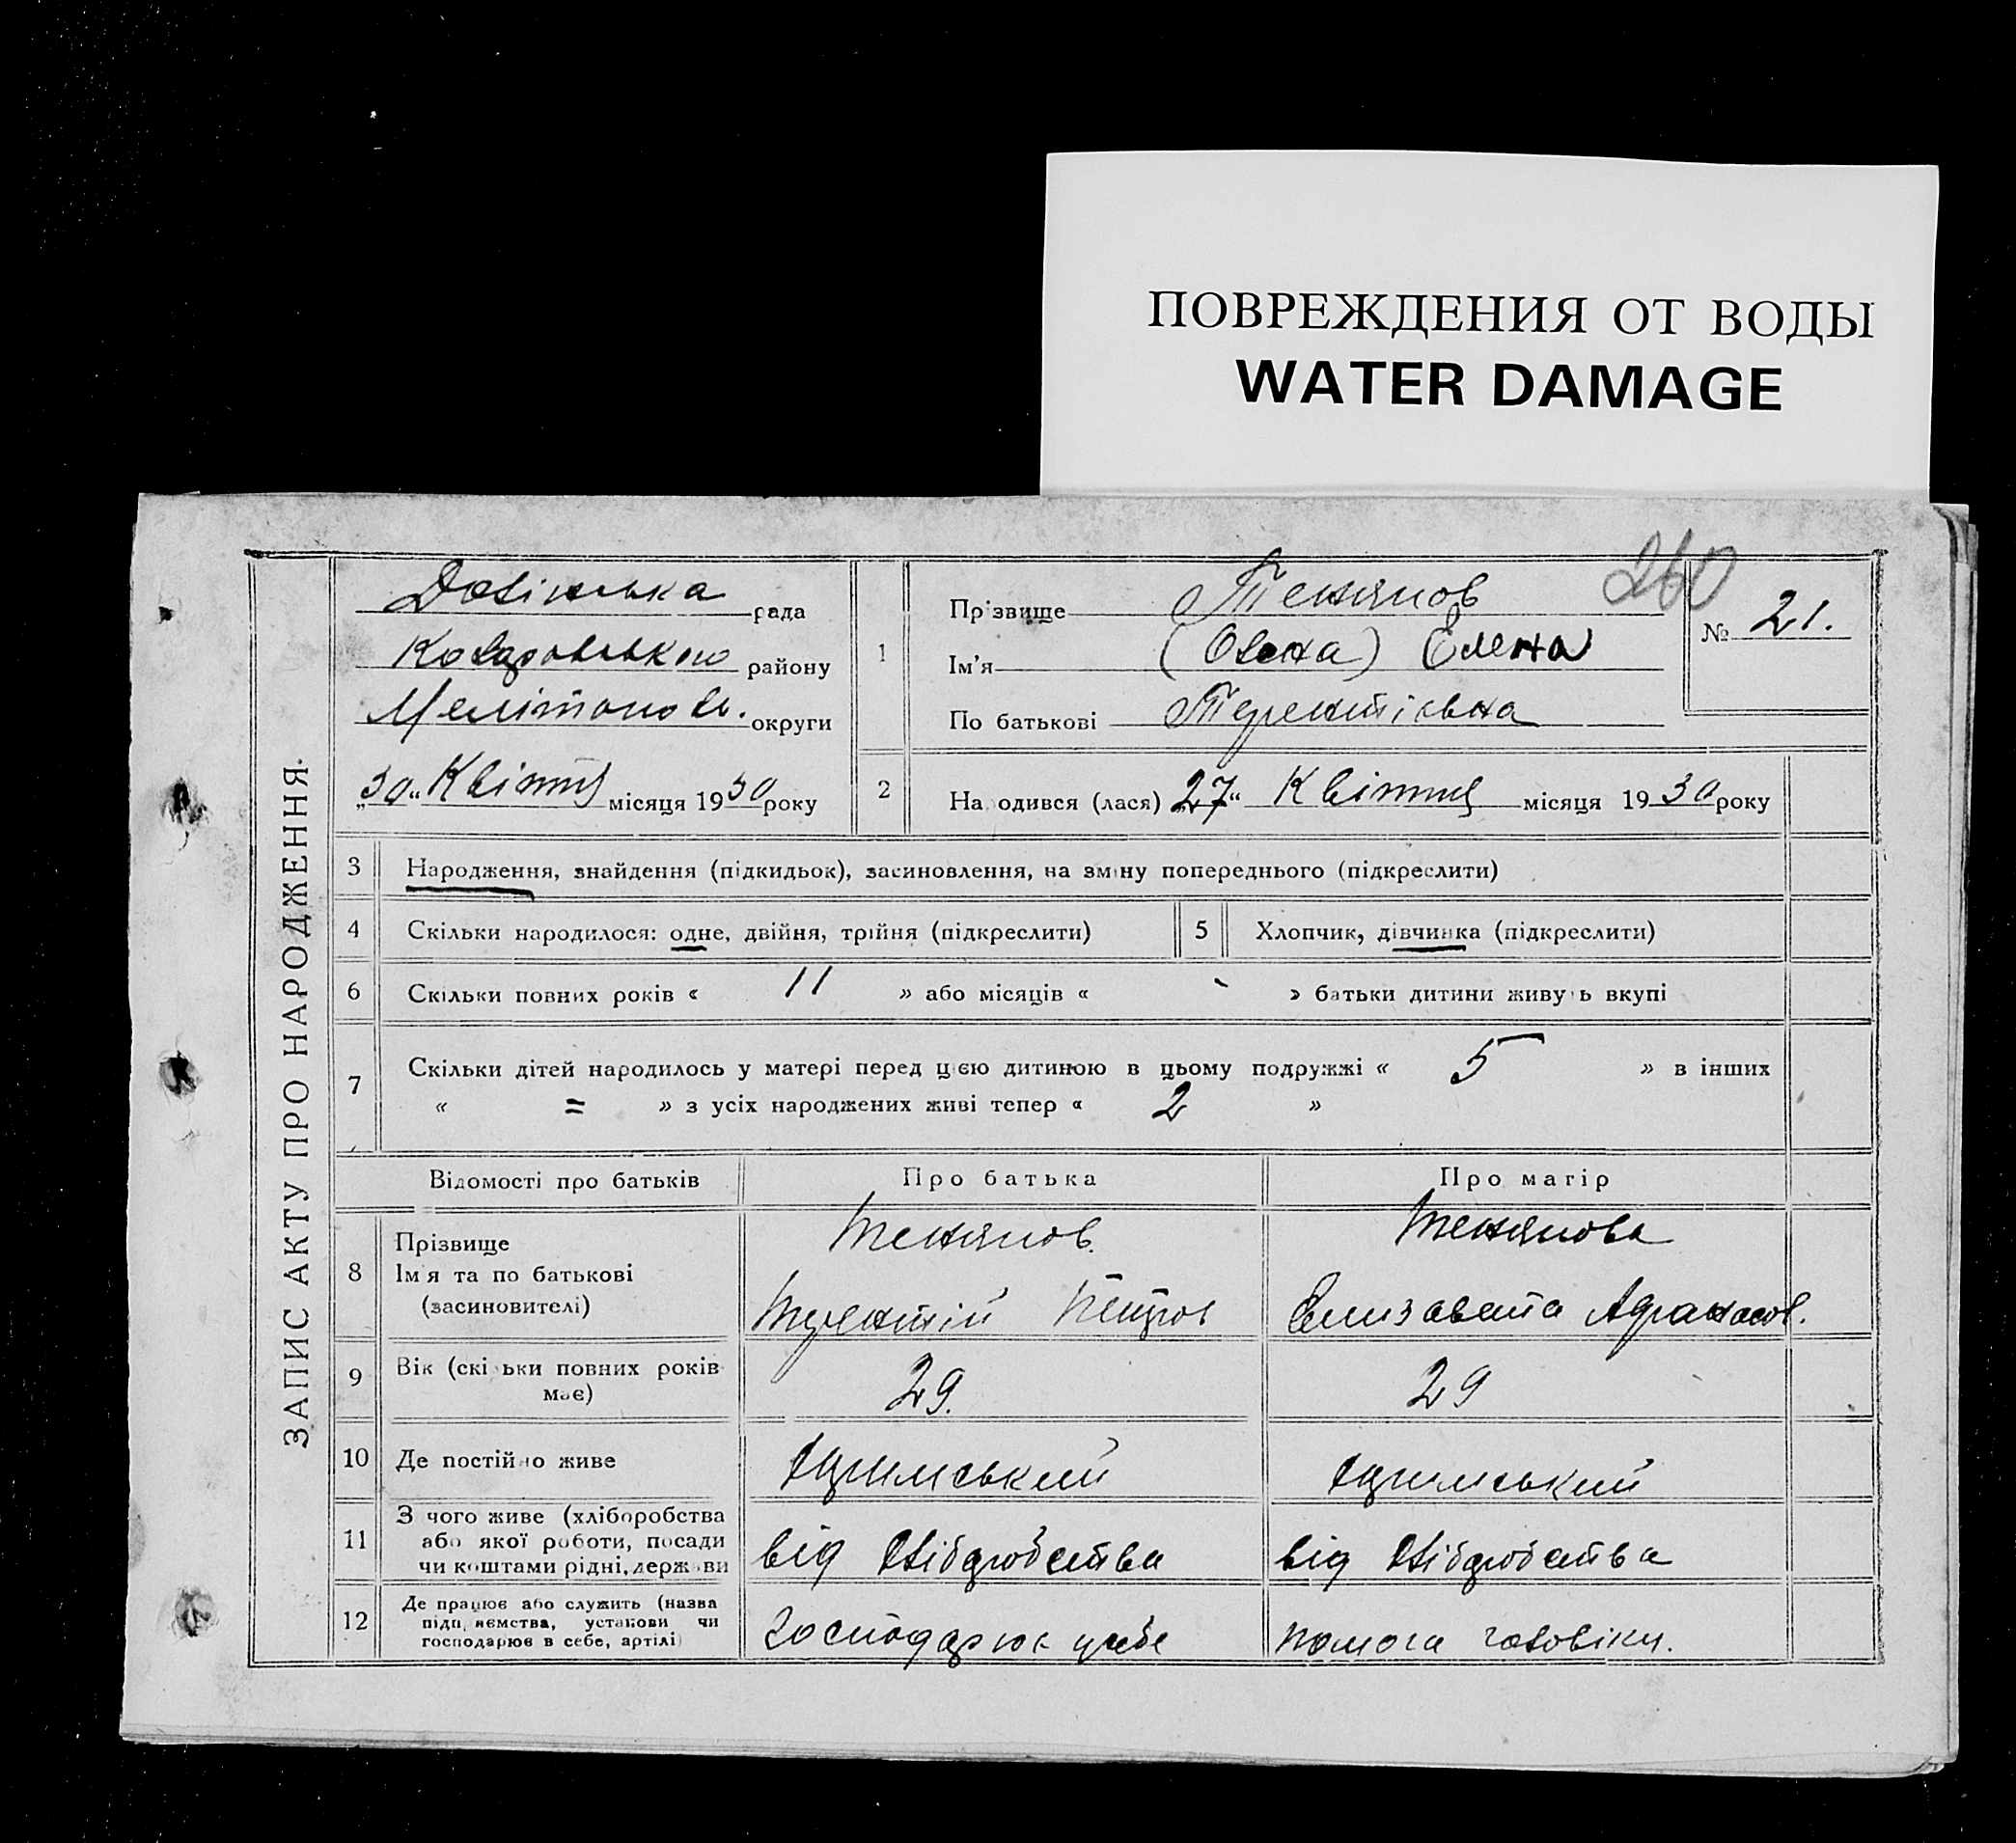 ПОВРЕЖДЕНИЯ ОТ ВОДЫ
WATER DAMAGE
260
ЗАПИС АКТУ ПРО НАРОДЖЕННЯ.
рада
району
Мелітополь. округи
„30“ Квітня місяця 1930 року
1
Прізвище
Ім'я (Олена) Елена
По батькові Терентівна
№ 21.
2 Народився (лася) „27“ Квітня місяця 1930 року
3 Народження, знайдення (підкидьок), засиновлення, на зміну попереднього (підкреслити)
4 Скільки народилося: одне, двійня, трійня (підкреслити)
5 Хлопчик, дівчинка (підкреслити)
6 Скільки повних років « 11 » або місяців « - » батьки дитини живуть вкупі
7 Скільки дітей народилось у матері перед цією дитиною в цьому подружжі « 5 » в інших
« = » з усіх народжених живі тепер « 2 »
Відомості про батьків Про батька Про матір
8 Прізвище
Ім'я та по батькові
(засиновителі)
Терентій Петров
Елизавета Афанасов.
9 Вік (скільки повних років
має) 29. 29
10 Де постійно живе
11 З чого живе (хліборобства
або якої роботи, посади
чи коштами рідні, держави
від хліборобства від хліборобства
12 Де працює або служить (назва
підприємства, установи чи
господарює в себе, артілі)
господарює у себе помога чоловіку.